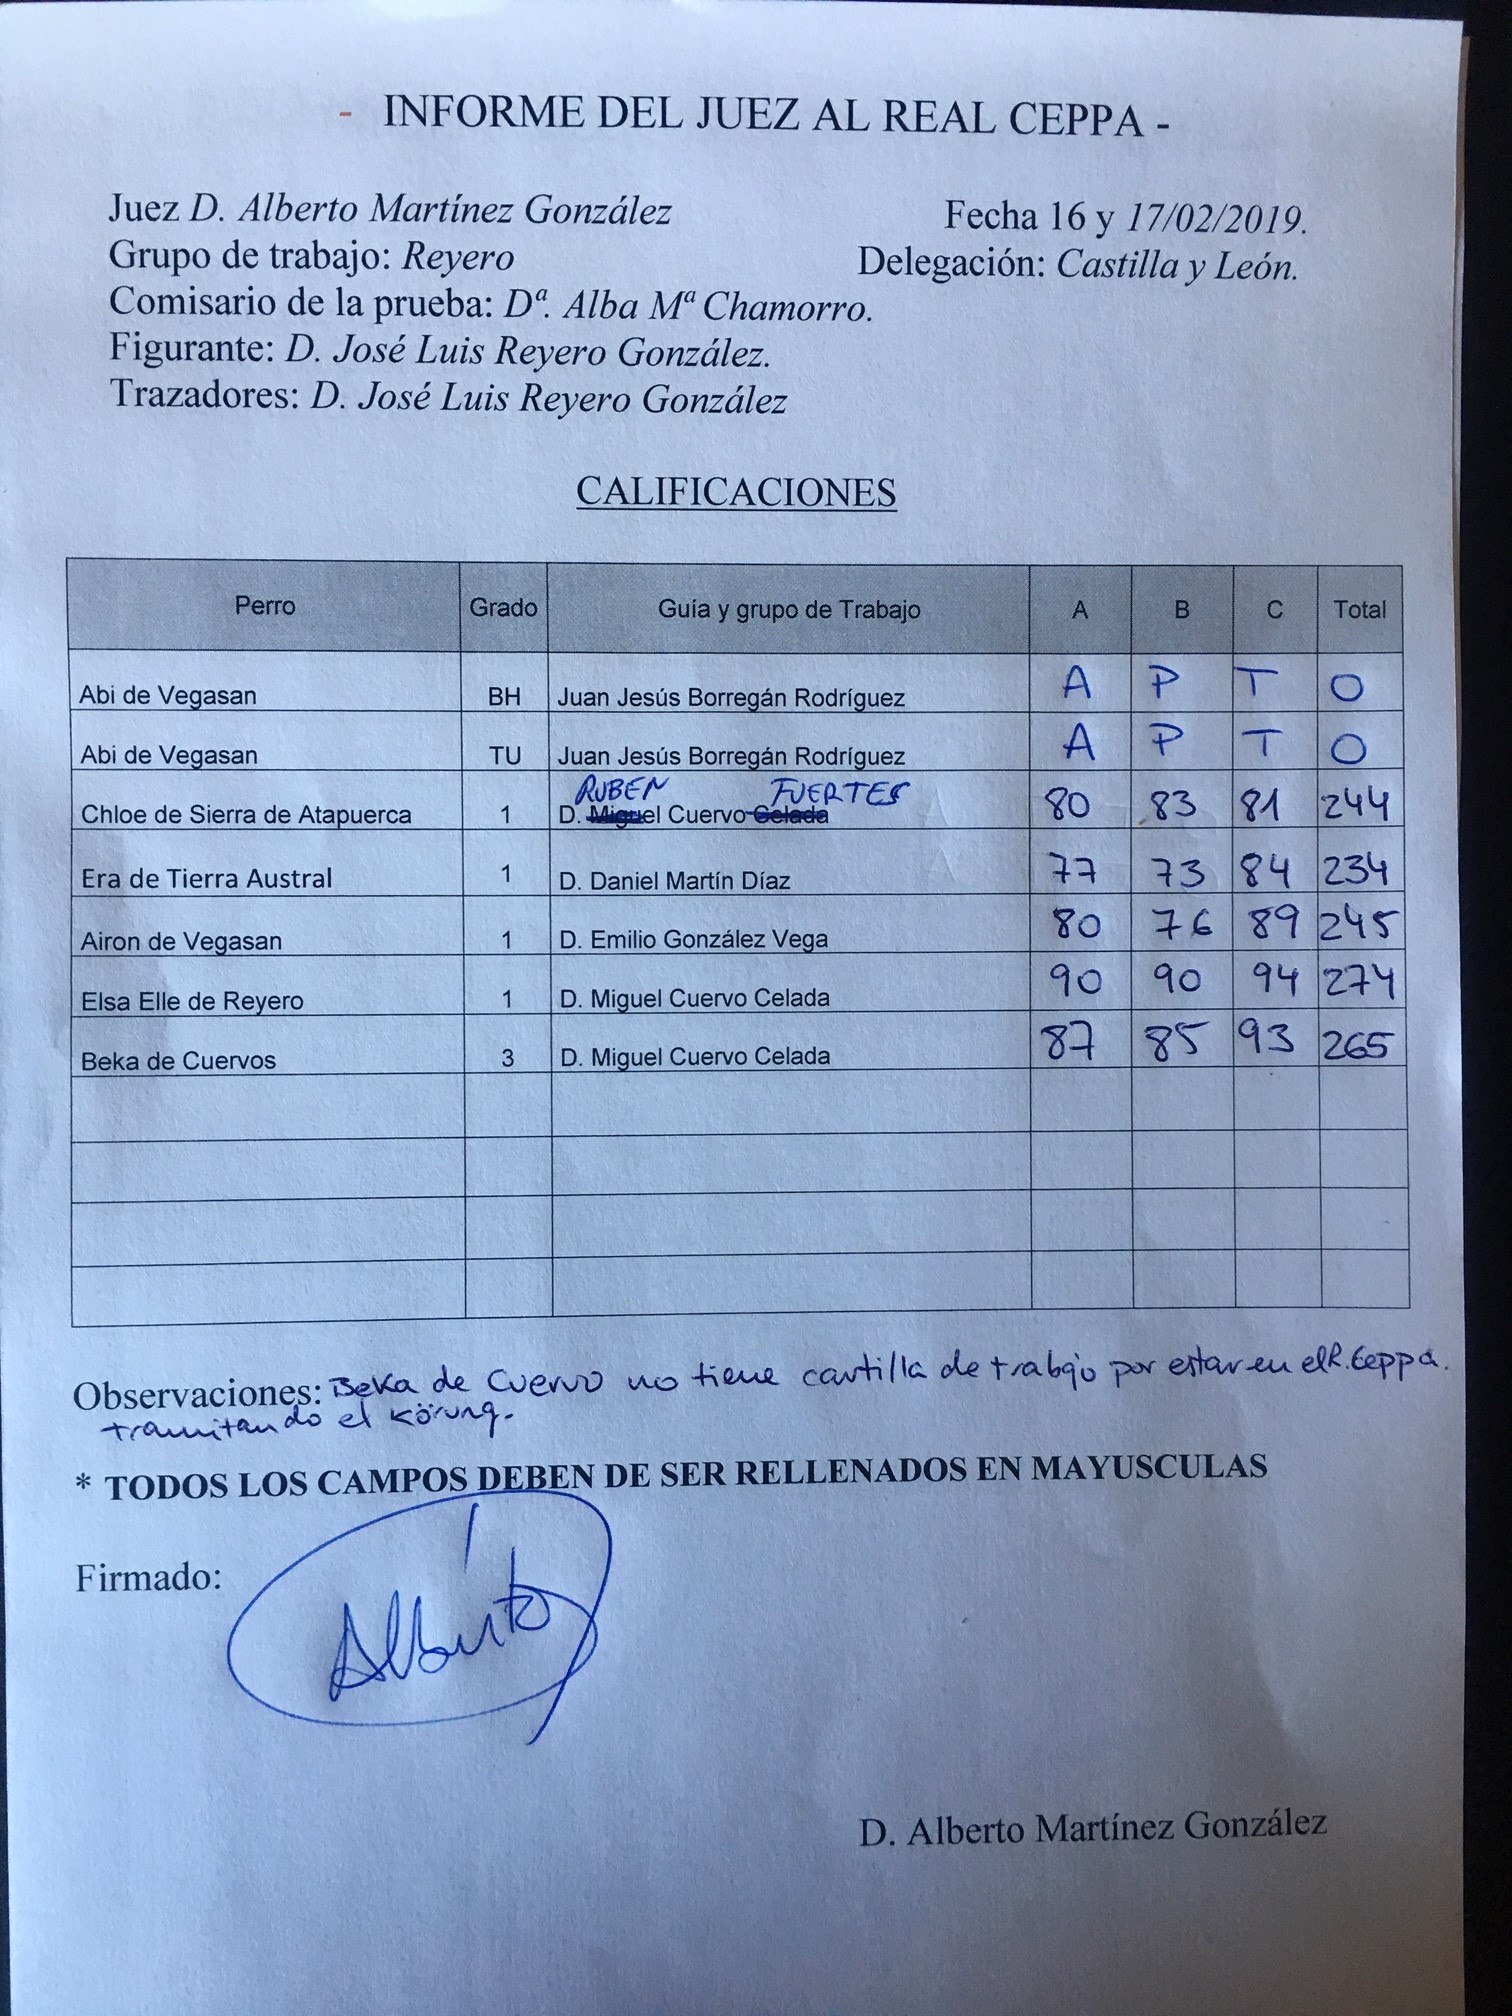 - INFORME DEL JUEZ AL REAL CEPPA -
Juez D. Alberto Martínez González Fecha 16 y 17/02/2019.
Grupo de trabajo: Reyero Delegación: Castilla y León.
Comisario de la prueba: Dª. Alba Mª Chamorro.
Figurante: D. José Luis Reyero González.
Trazadores: D. José Luis Reyero González
CALIFICACIONES
Perro Grado Guía y grupo de Trabajo A B C Total
Abi de Vegasan BH Juan Jesús Borregán Rodríguez A P T O
Abi de Vegasan TU Juan Jesús Borregán Rodríguez A P T O
RUBEN FUERTES
Chloe de Sierra de Atapuerca 1 D. Miguel Cuervo Celada 80 83 81 244
Era de Tierra Austral 1 D. Daniel Martín Díaz 77 73 84 234
Airon de Vegasan 1 D. Emilio González Vega 80 76 89 245
Elsa Elle de Reyero 1 D. Miguel Cuervo Celada 90 90 94 274
Beka de Cuervos 3 D. Miguel Cuervo Celada 87 85 93 265
Observaciones: Beka de Cuervo no tiene cartilla de trabajo por estar en el R. Ceppa.
tramitando el Körung.
* TODOS LOS CAMPOS DEBEN DE SER RELLENADOS EN MAYUSCULAS
Firmado:
Alberto
D. Alberto Martínez González